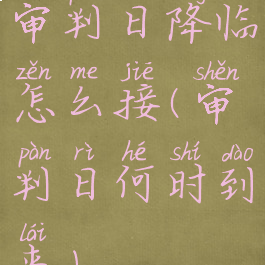 审判日降临
zěn me jiē shěn
怎么接(审
pàn rì hé shí dào
判日何时到
lái
来)